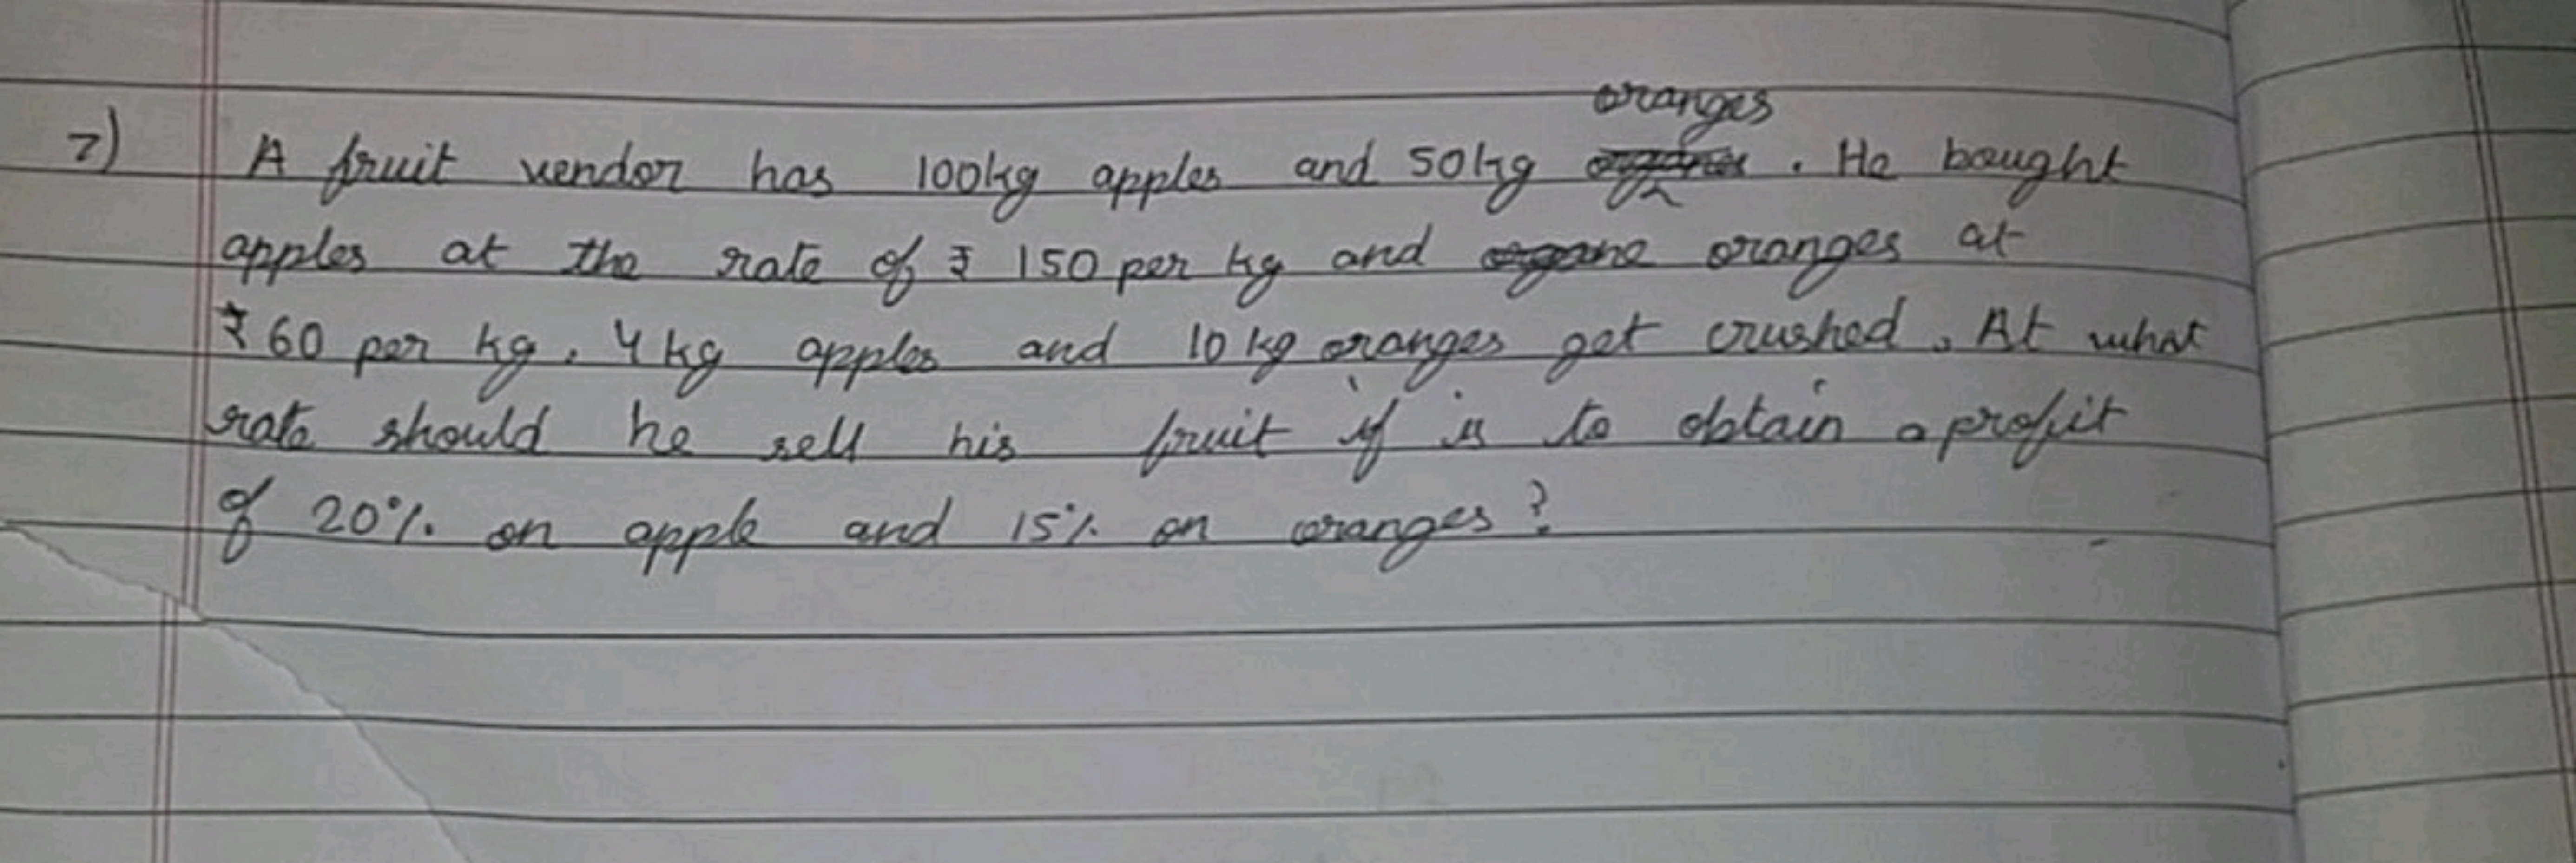 7) A fruit vendor has 100kg apples and 50kg oranges . He bought
apples at the rate of ₹ 150 per kg and oranges at
₹60 per kg. 4 kg apples and 10 kg oranges get crushed. At what
rate should he sell his fruit if is to obtain a profit
of 20% on apple and 15% on oranges?